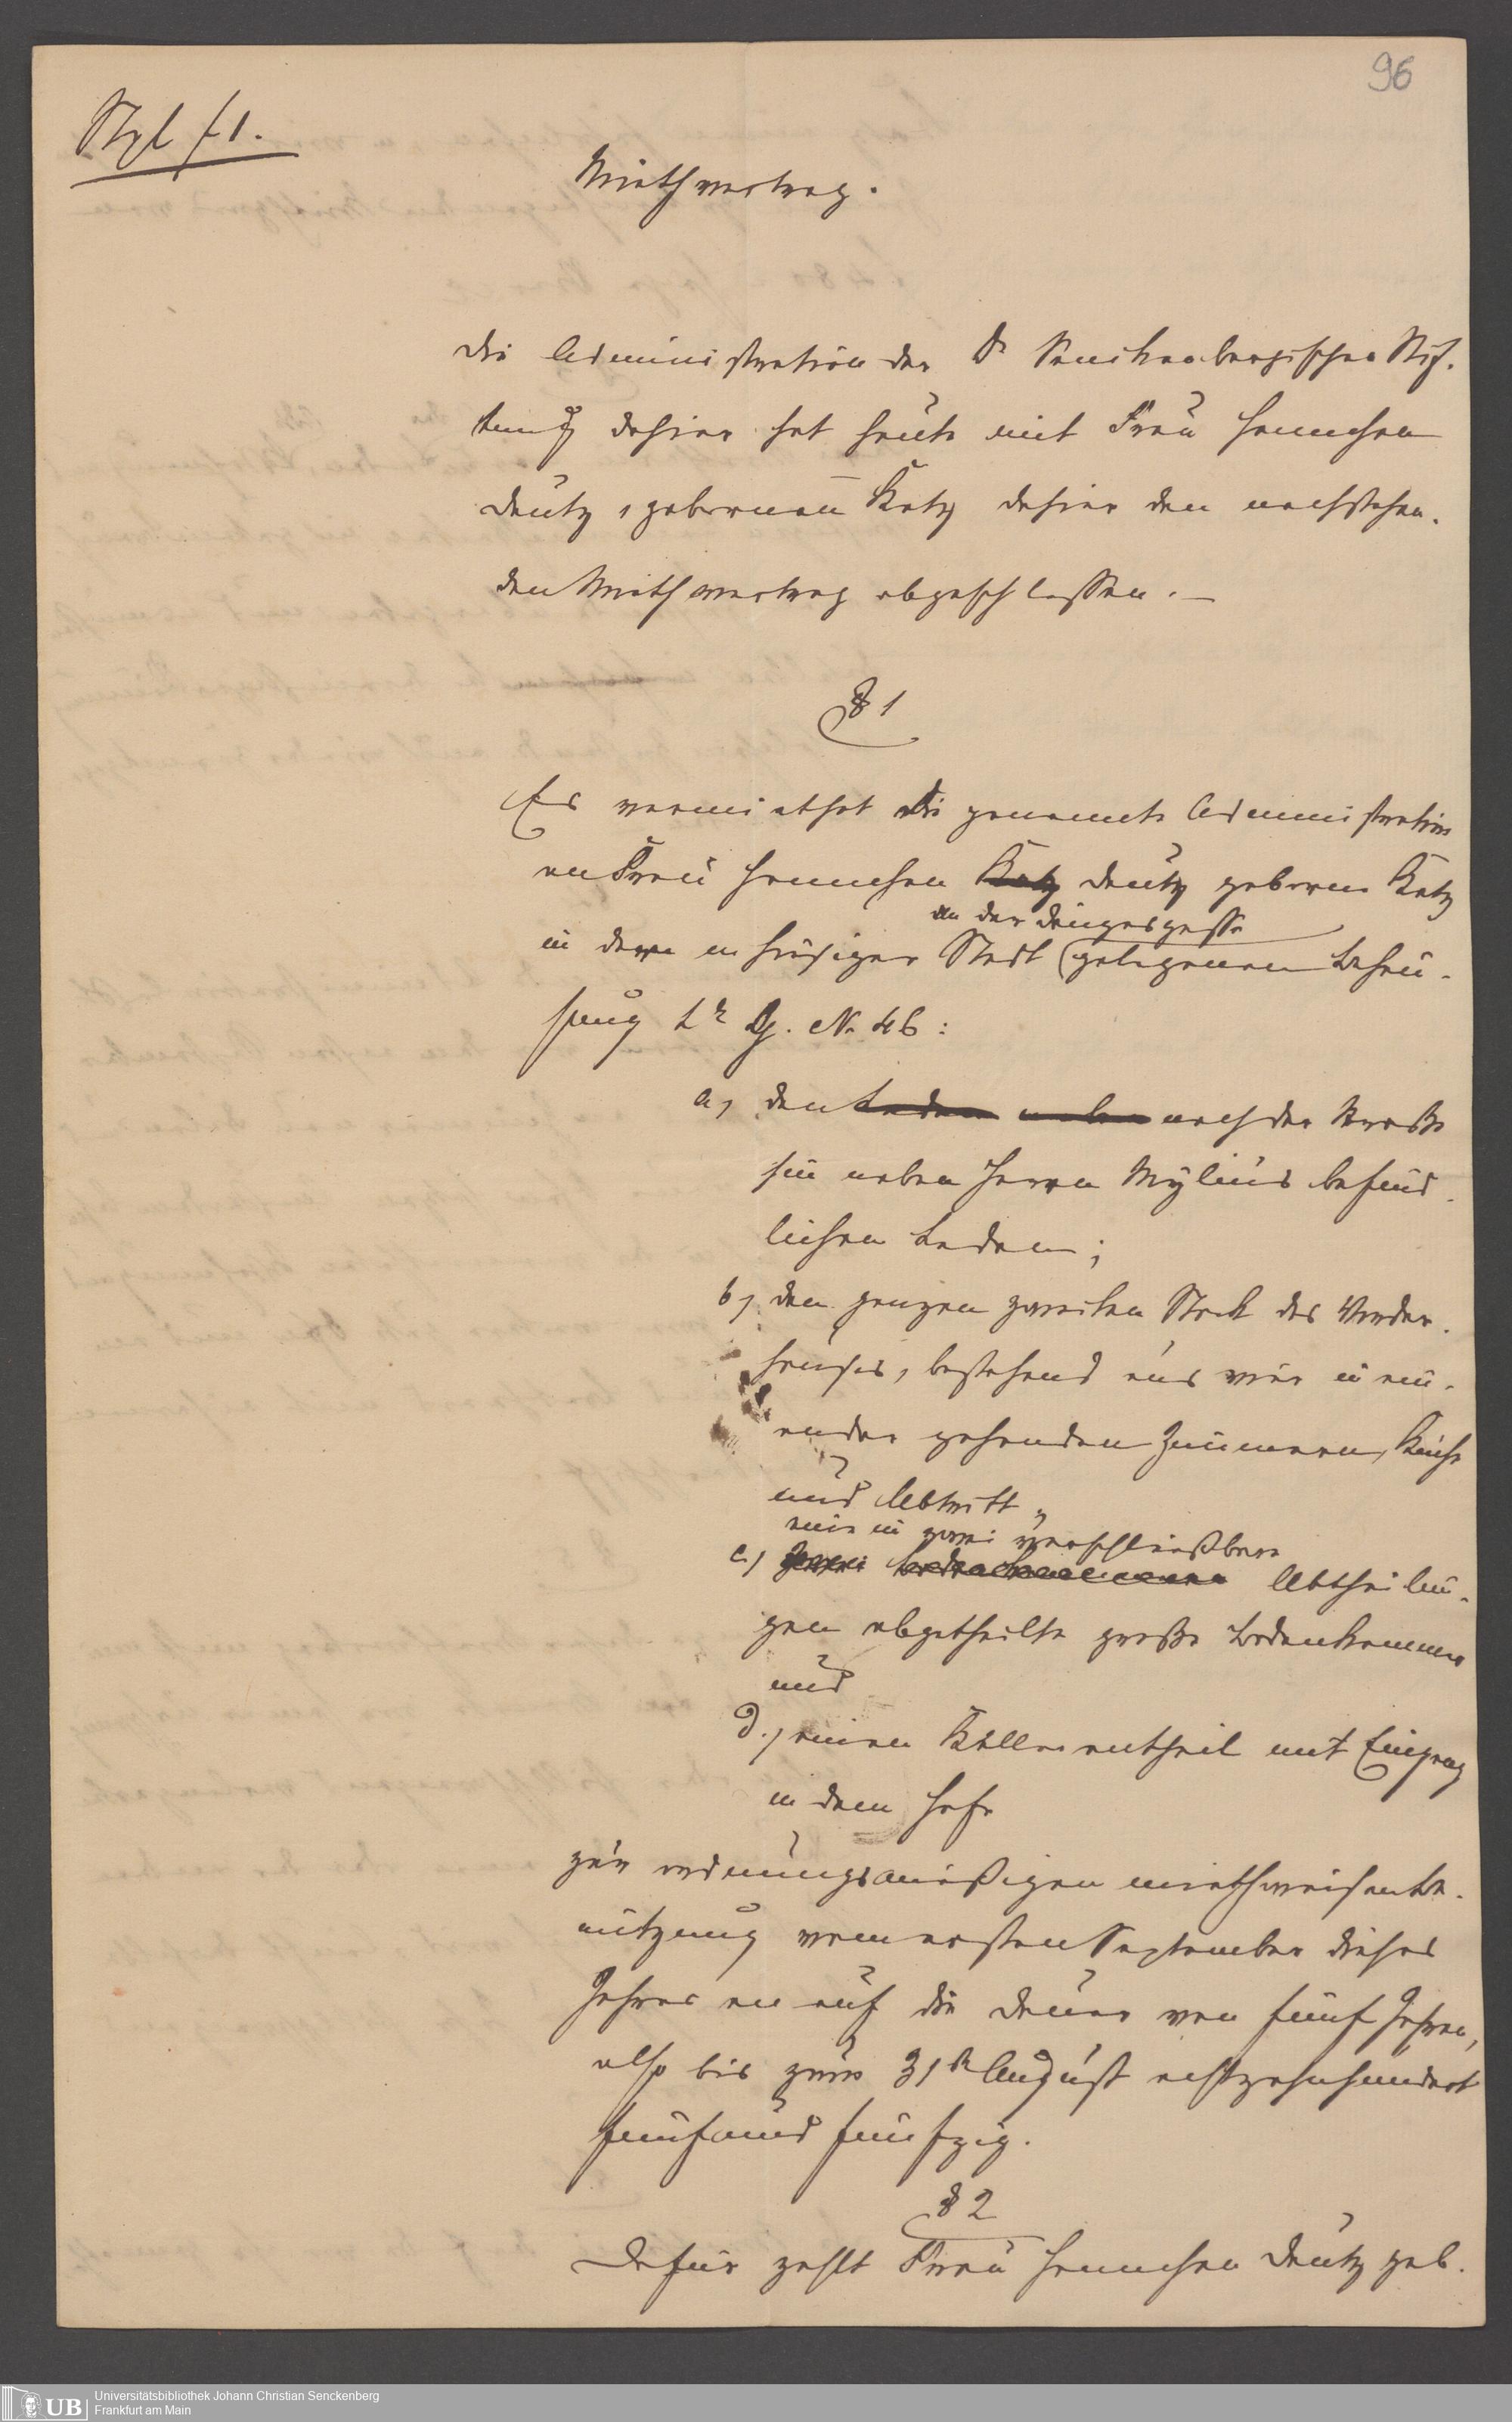 96
Stpl f 1.
Miethvertrag.
Die Administration der Dr Senckenbergischen Stif-
tung dahier hat heute mit Frau Hannchen
Deutz, geborenen Katz dahier den nachstehen-
den Miethvertrag abgeschlossen. —
§ 1
Es vermiethet die genannte Administration
an Frau Hannchen Katz Deutz geborene Katz
an der Döngesgasse
in deren in hiesiger Stadt (gelegenen Behau-
sung Lr G. No 46:
a, den Laden neben nach der Strasse
hin neben Herrn Mylius befind-
lichen Laden;
b, den ganzen zweiten Stock des Vorder-
hauses, bestehend aus vier in ein-
ander gehenden Zimmern, Küche
und Abtritt,
eine in zwei verschließbare
c.) zwei Bodenkammern Abtheilun-
gen abgetheilte große Bodenkammer
und
d.) einen Kellerantheil mit Eingang
in dem Hofe
zur ordnungsmäßigen miethweisen Be-
nützung vom ersten September dieses
Jahres an auf die Dauer von fünf Jahren,
also bis zum 31ten August achtzehnhundert
fünfundfünfzig.
§ 2
Dafür zahlt Frau Hannchen Deutz geb.
UB
Universitätsbibliothek Johann Christian Senckenberg
Frankfurt am Main